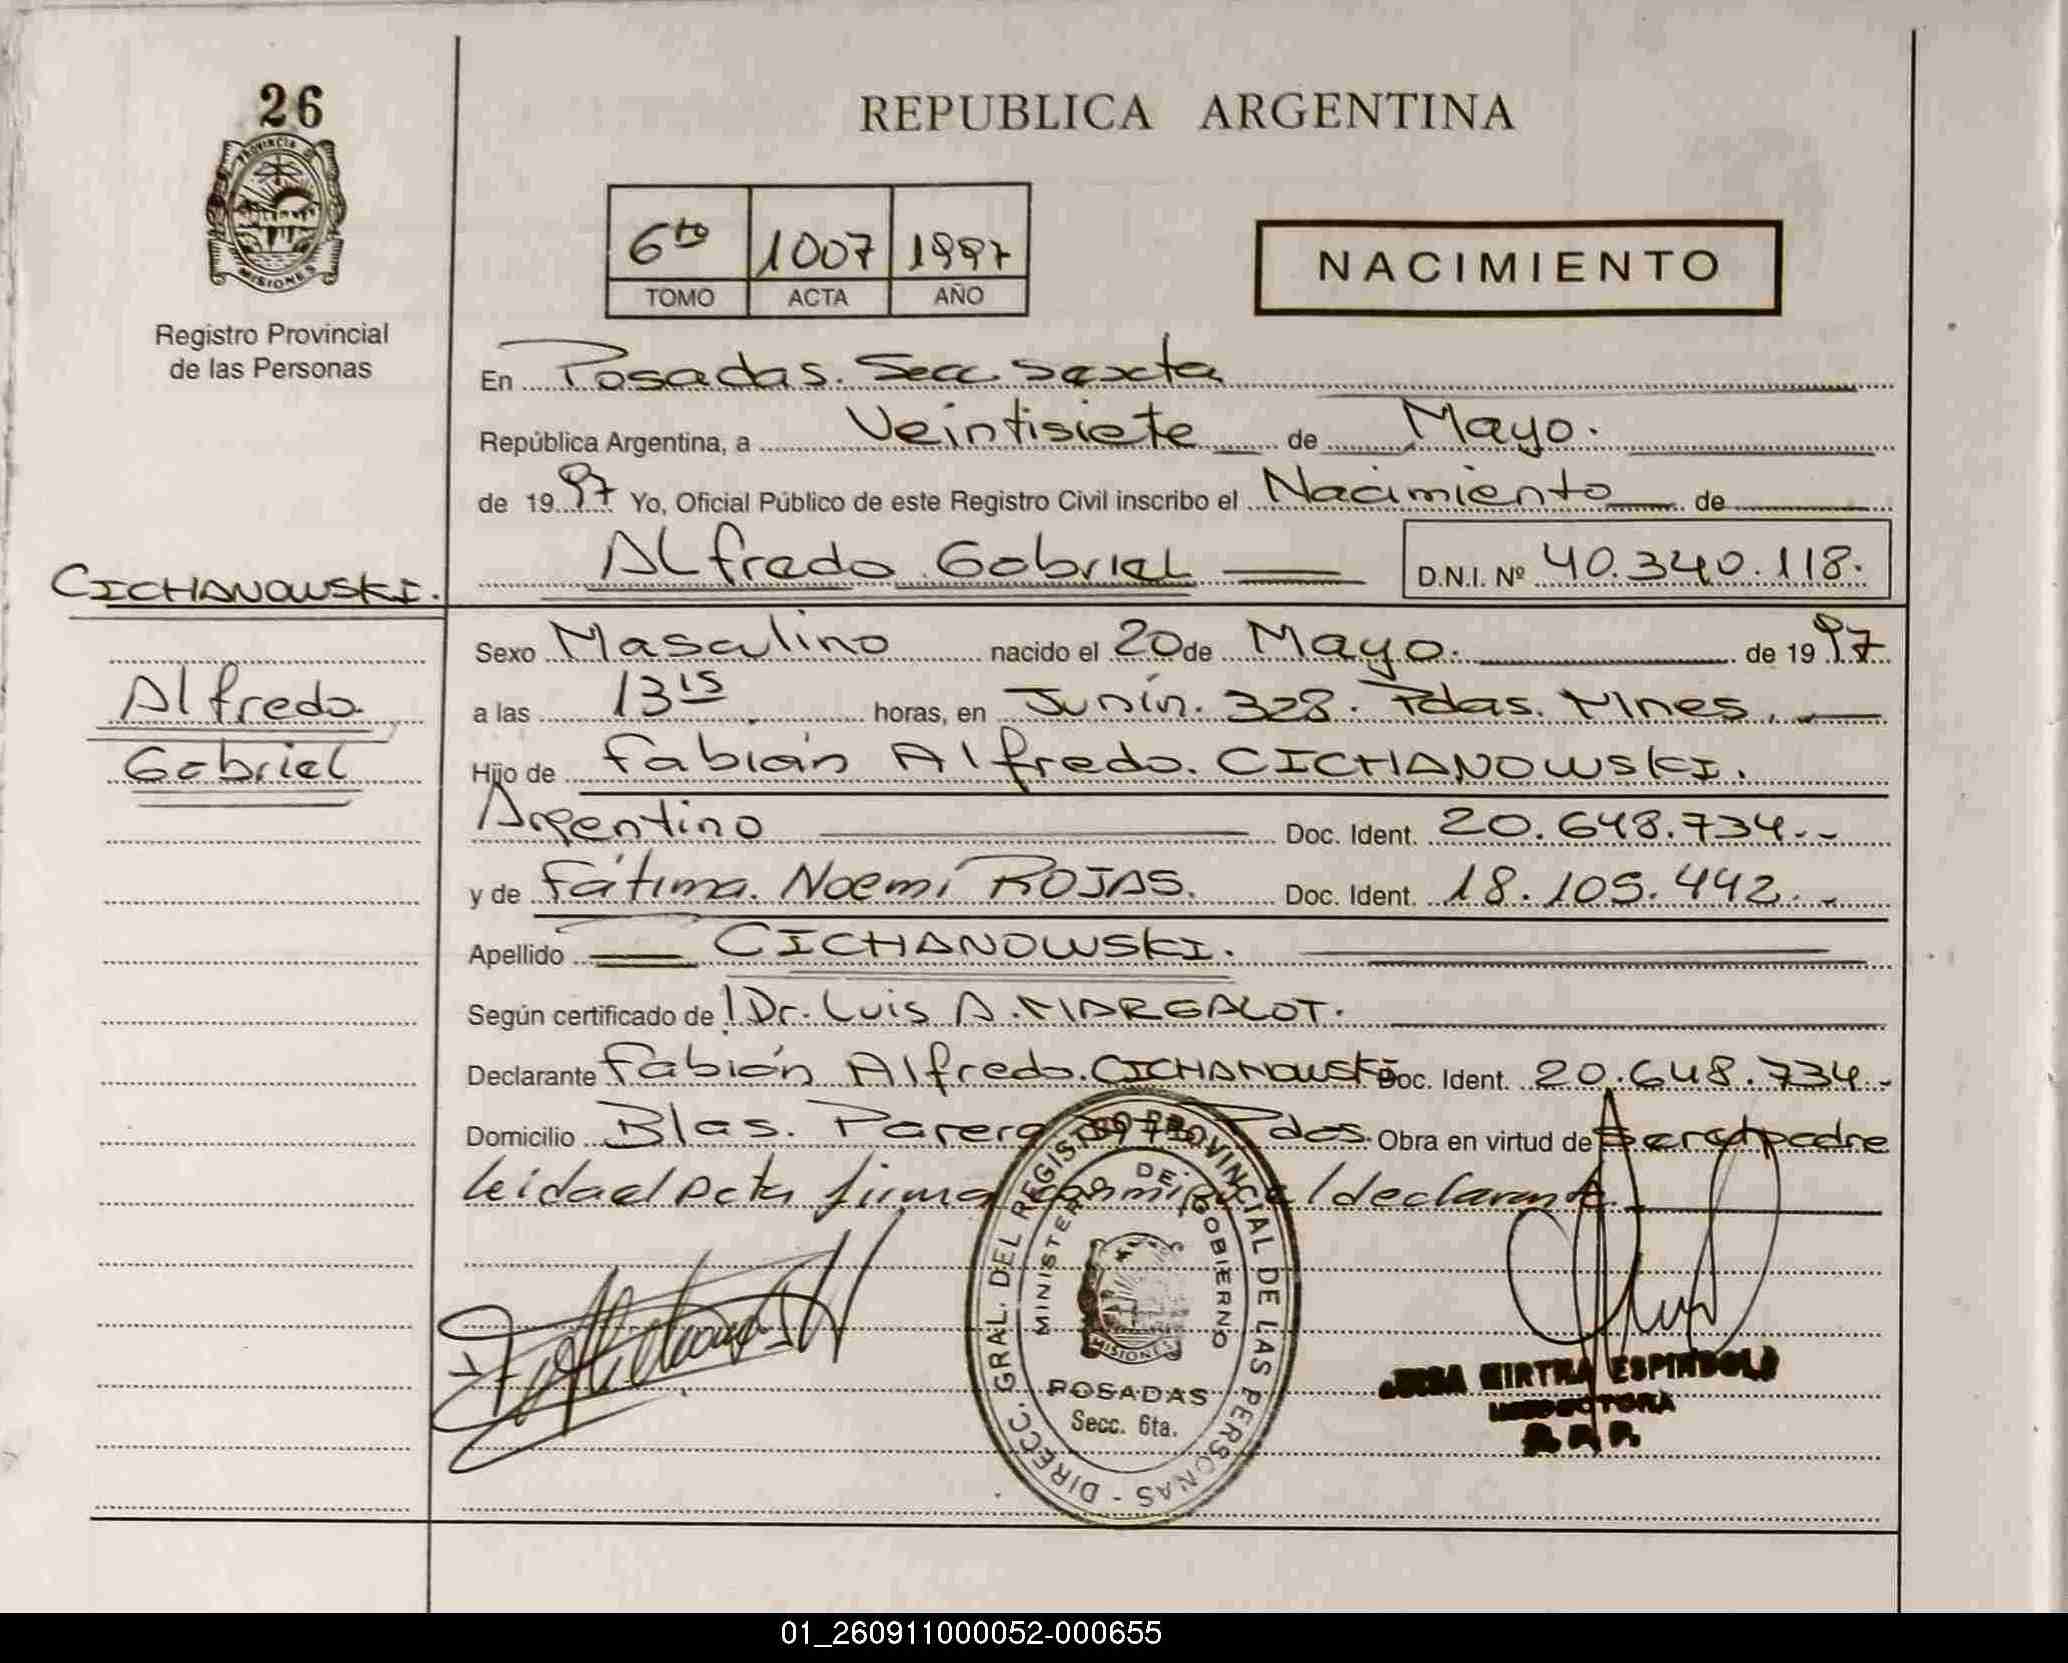 26
PROVINCIA DE
MISIONES
Registro Provincial
de las Personas
REPUBLICA ARGENTINA
6to 1007 1997
TOMO ACTA AÑO
NACIMIENTO
En Posadas. Secc. Sexta
República Argentina, a Veintisiete de Mayo.
de 1997 Yo, Oficial Público de este Registro Civil inscribo el Nacimiento de
Alfredo Gabriel D.N.I. Nº 40.340.118.
CICHANOWSKI.
Alfredo
Gabriel
Sexo Masculino nacido el 20 de Mayo. de 1997
a las 13 15 horas, en Junín. 328. Pdas. Mnes.
Hijo de Fabián Alfredo. CICHANOWSKI.
Argentino Doc. Ident. 20.648.734.-
y de Fátima. Noemí ROJAS. Doc. Ident. 18.105.442.-
Apellido CICHANOWSKI.
Según certificado de Dr. Luis A. MARGALOT.
Declarante Fabián Alfredo. CICHANOWSKI Doc. Ident. 20.648.734.-
Domicilio Blas. Parera Pdas. Obra en virtud de Ser padre
leida el Acta firma conmigo el declarante.
DIRECC. GRAL. DEL REGISTRO PROVINCIAL DE LAS PERSONAS
MINISTERIO DE GOBIERNO
MISIONES
POSADAS
Secc. 6ta.
MIRTHA ESPINDOLA
01_260911000052-000655